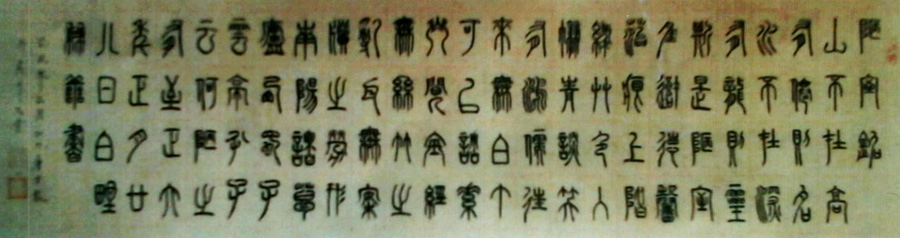 陋室銘
山不在高
有僊則名
水不在深
有龍則靈
斯是陋室
惟吾德馨
苔痕上階
綠艸色入
簾青談笑
有鴻儒往
來無白丁
可以調素
琴閱金經
無絲竹之
亂耳無案
牘之勞形
南陽諸葛
廬西蜀子
雲亭孔子
云何陋之
有至正六
年正月廿
八日白野
兼善書